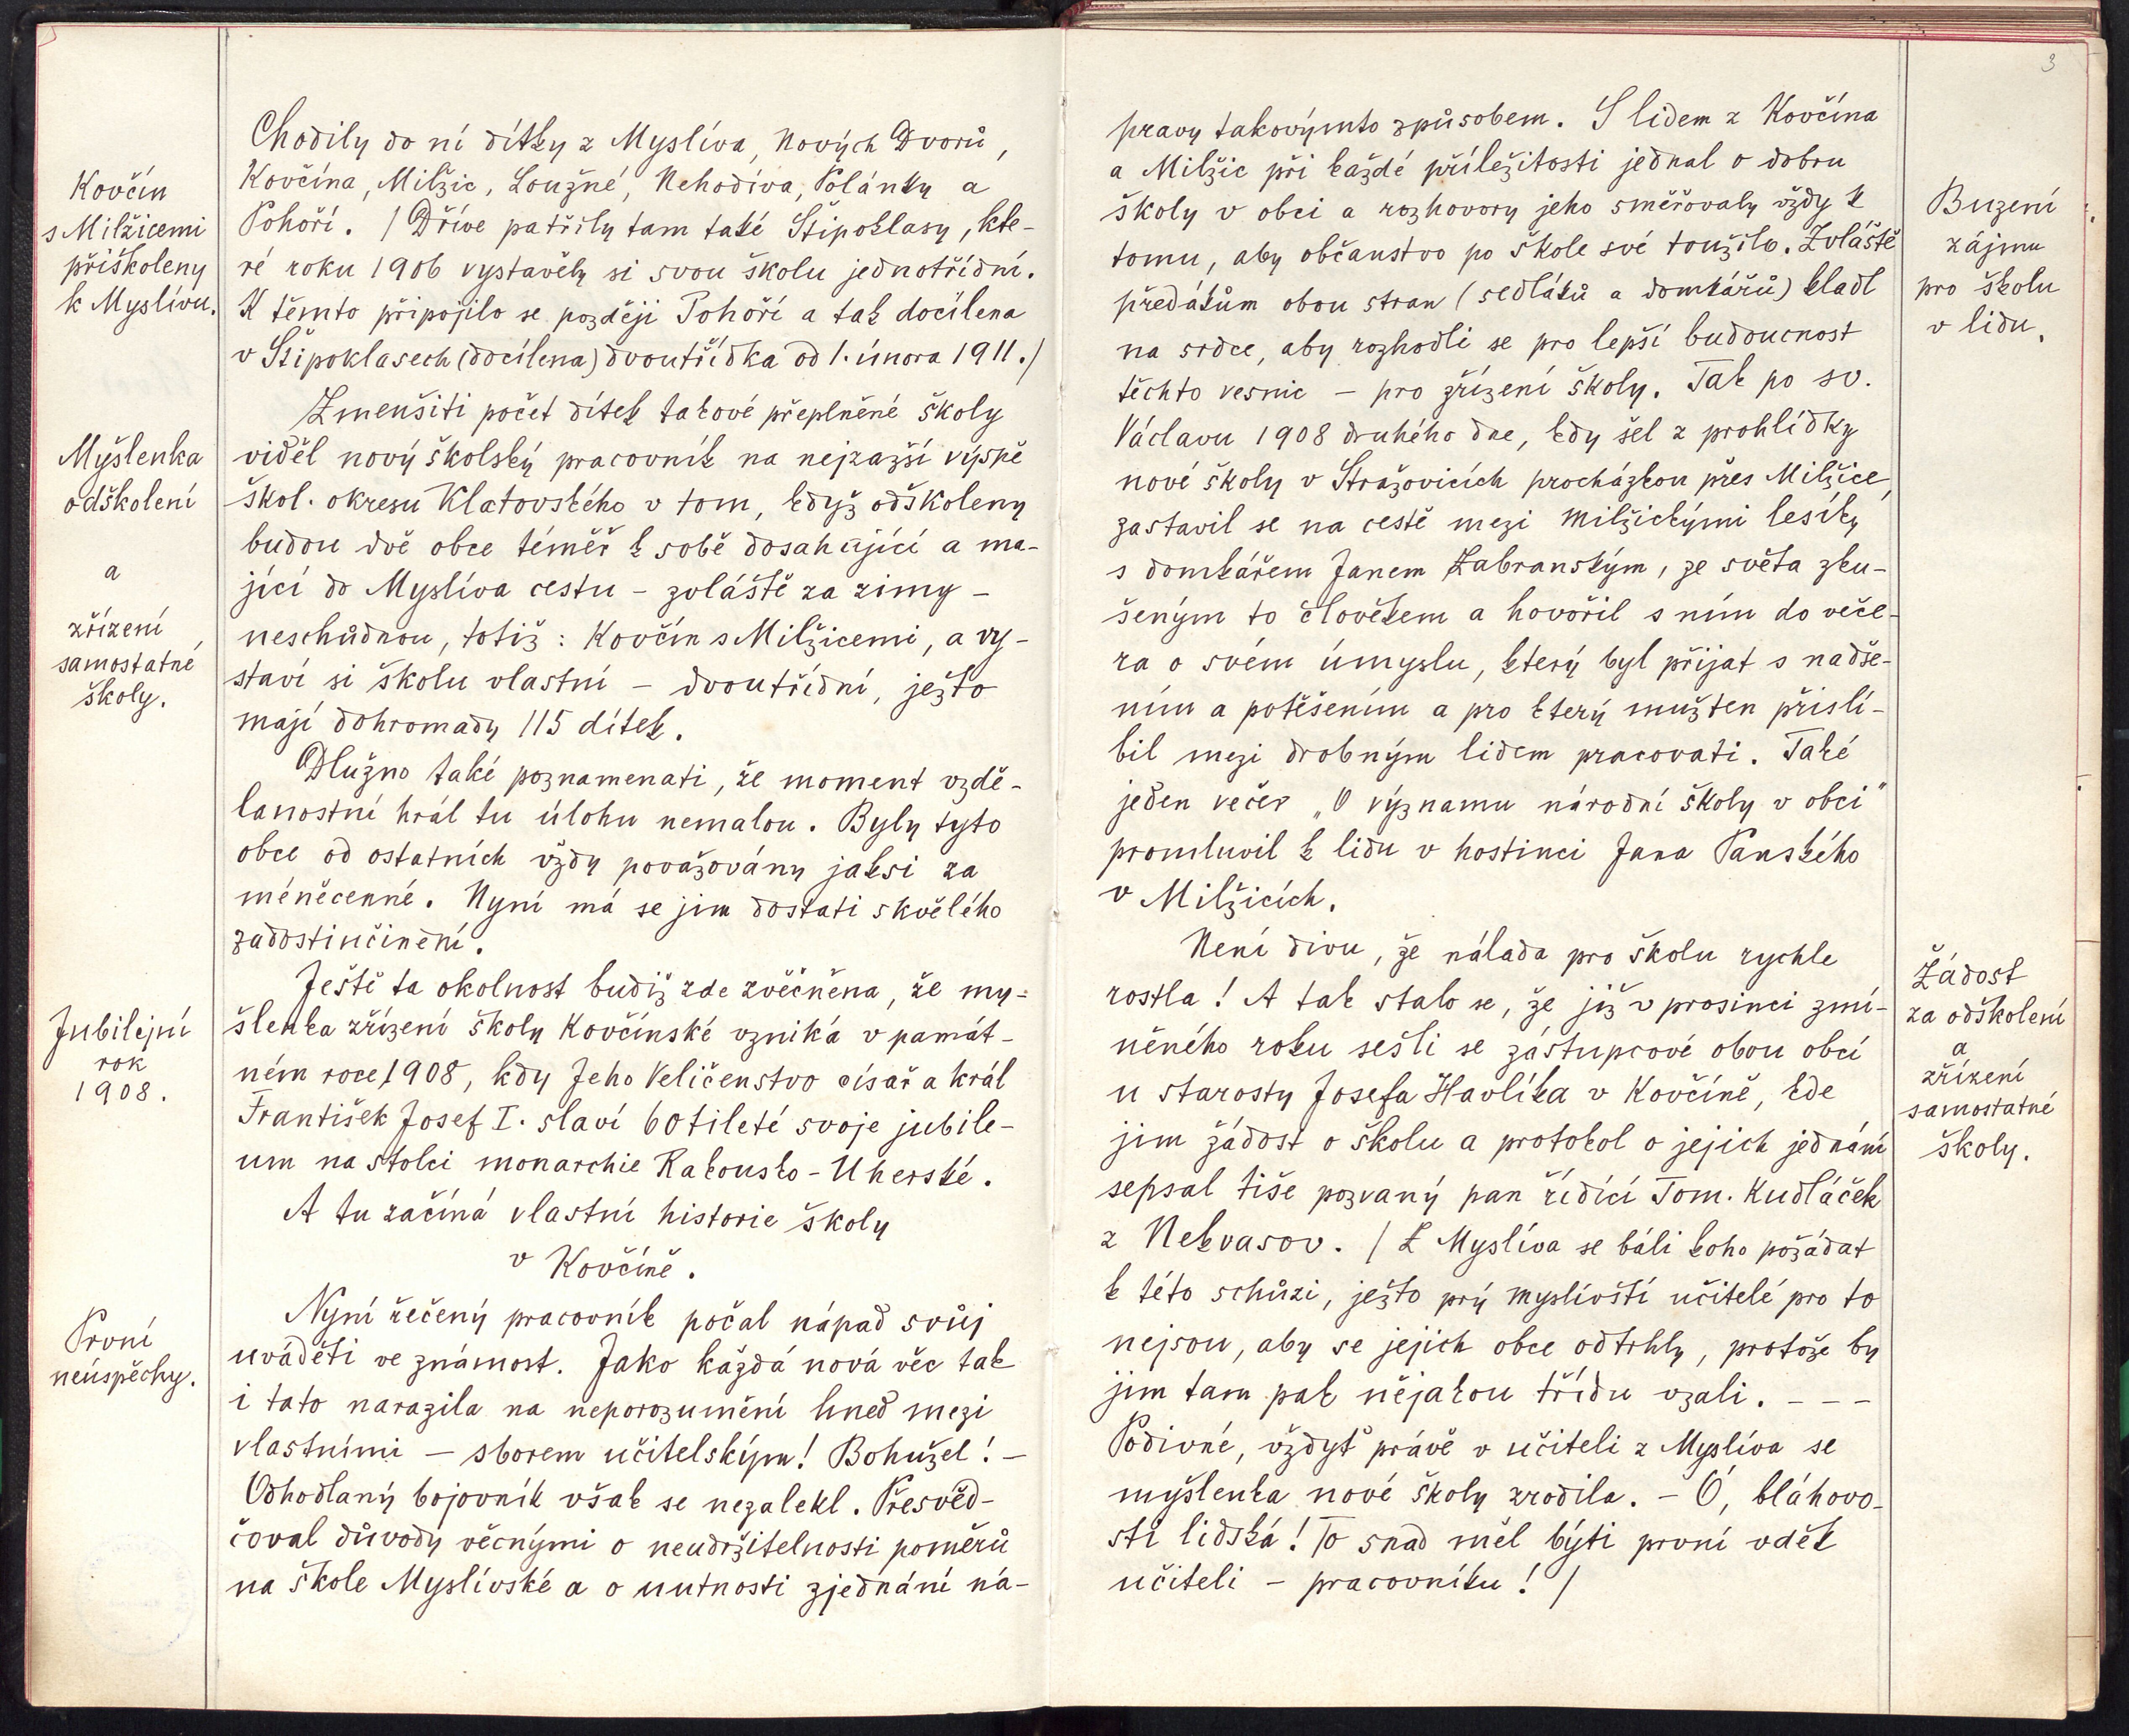 Kovčín
s Milžicemi
přiškoleny
k Myslívu.
Myšlenka
odškolení
a
zřízení
samostatné
školy.
Jubilejní
rok
1908.
První
neúspěchy.
Chodily do ní dítky z Myslíva, Nových Dvorů,
Kovčína, Milžic, Loužné, Nehodíva, Polánky a
Pohoří. / Dříve patřily tam také Štipoklasy, kte-
ré roku 1906 vystavěly si svou školu jednotřídní.
K těmto připojilo se později Pohoří a tak docílena
v Štipoklasech (docílena) dvoutřídka od 1. února 1911./
Zmenšiti počet dítek takové přeplněné školy
viděl nový školský pracovník na nejzazší výspě
škol. okresu Klatovského v tom, když odškoleny
budou dvě obce téměř k sobě dosahující a ma-
jící do Myslíva cestu - zvláště za zimy -
neschůdnou, totiž: Kovčín s Milžicemi, a vy-
staví si školu vlastní - dvoutřídní, ježto
mají dohromady 115 dítek.
Dlužno také poznamenati, že moment vzdě-
lanostní hrál tu úlohu nemalou. Byly tyto
obce od ostatních vždy považovány jaksi za
méněcenné. Nyní má se jim dostati skvělého
zadostiučinění.
Ještě ta okolnost budiž zde zvěčněna, že my-
šlenka zřízení školy Kovčínské vzniká v památ-
ném roce 1908, kdy Jeho Veličenstvo císař a král
František Josef I. slaví 60tileté svoje jubile-
um na stolci monarchie Rakousko-Uherské.
A tu začíná vlastní historie školy
v Kovčíně.
Nyní řečený pracovník počal nápad svůj
uváděti ve známost. Jako každá nová věc tak
i tato narazila na neporozumění hned mezi
vlastními - sborem učitelským! Bohužel! -
Odhodlaný bojovník však se nezalekl. Přesvěd-
čoval důvody věcnými o neudržitelnosti poměrů
na škole Myslívské a o nutnosti zjednání ná-
3
pravy takovýmto způsobem. S lidem z Kovčína
a Milžic při každé příležitosti jednal o dobru
školy v obci a rozhovory jeho směřovaly vždy k
tomu, aby občanstvo po škole své toužilo. Zvláště
předákům obou stran (sedláků a domkářů) kladl
na srdce, aby rozhodli se pro lepší budoucnost
těchto vesnic - pro zřízení školy. Tak po sv.
Václavu 1908 druhého dne, kdy šel z prohlídky
nové školy v Stražovicích procházkou přes Milžice,
zastavil se na cestě mezi milžickými lesíky
s domkářem Janem Zabranským, ze světa zku-
šeným to člověkem a hovořil s ním do veče-
ra o svém úmyslu, který byl přijat s nadše-
ním a potěšením a pro který muž ten přislí-
bil mezi drobným lidem pracovati. Také
jeden večer „O významu národní školy v obci"
promluvil k lidu v hostinci Jana Panského
v Milžicích.
Není divu, že nálada pro školu rychle
rostla! A tak stalo se, že již v prosinci zmí-
něného roku sešli se zástupcové obou obcí
u starosty Josefa Havlíka v Kovčíně, kde
jim žádost o školu a protokol o jejich jednání
sepsal tiše pozvaný pan řídící Tom. Kudláček
z Nekvasov. / Z Myslíva se báli koho požádat
k této schůzi, ježto prý myslívští učitelé pro to
nejsou, aby se jejich obce odtrhly, protože by
jim tam pak nějakou třídu vzali. - - -
Podivné, vždyť právě v učiteli z Myslíva se
myšlenka nové školy zrodila. - Ó, bláhovo-
sti lidská! To snad měl býti první vděk
učiteli - pracovníku! /
Buzení
zájmu
pro školu
v lidu.
Žádost
za odškolení
a
zřízení
samostatné
školy.